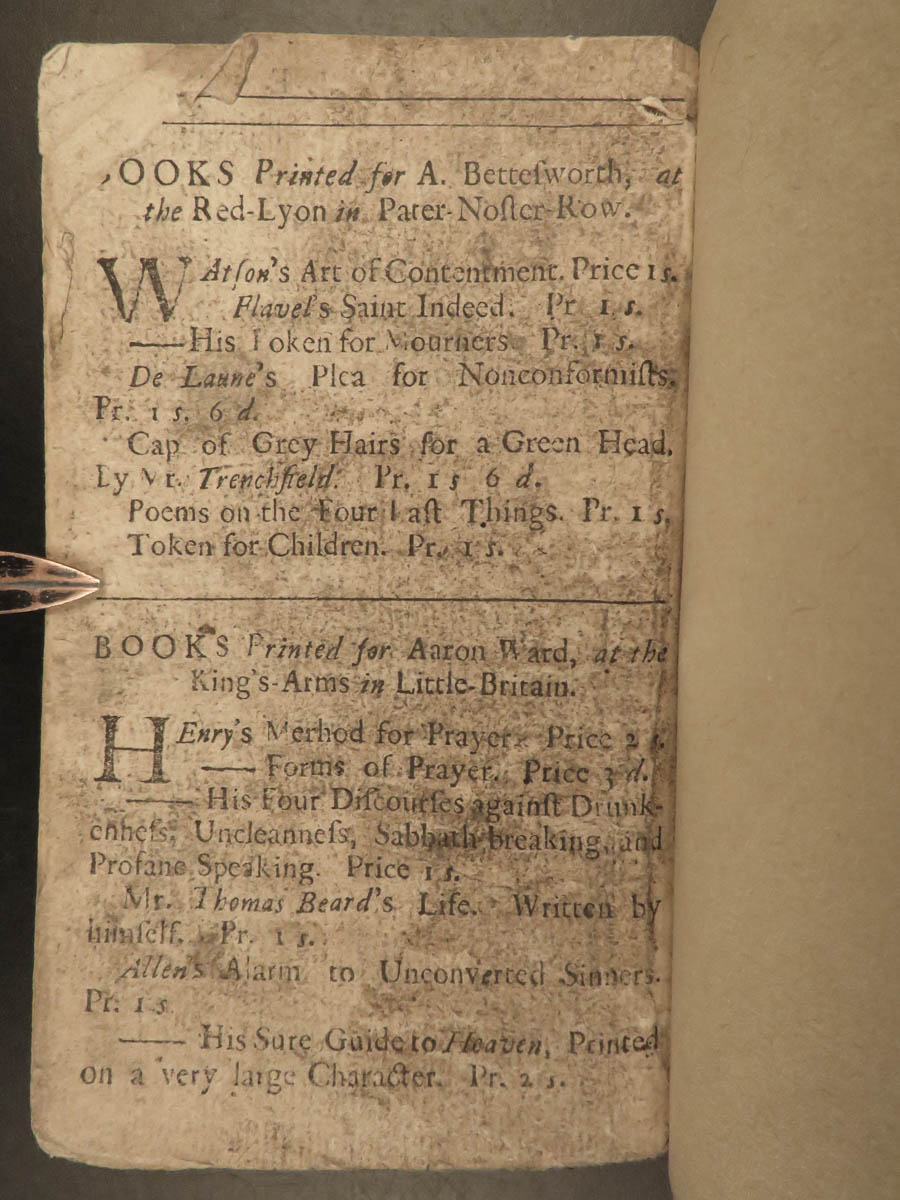 OOKS Printed for A. Betteſworth, at
the Red-Lyon in Pater-Noſter-Row.
WAtſon's Art of Contentment. Price 1s.
Flavel's Saint Indeed. Pr 1 s.
—His Token for Mourners. Pr. 1 s.
De Laune's Plea for Nonconformiſts.
Pr. 1 s. 6 d.
Cap of Grey Hairs for a Green Head.
By Mr. Trenchfield. Pr. 1 s 6 d.
Poems on the Four Laſt Things. Pr. 1 s.
Token for Children. Pr. 1 s.
BOOKS Printed for Aaron Ward, at the
King's-Arms in Little-Britain.
HEnry's Method for Prayer. Price 2 s.
— Forms of Prayer. Price 3 d.
— His Four Diſcourſes againſt Drunk-
enneſs, Uncleanneſs, Sabbath-breaking, and
Profane Speaking. Price 1 s.
Mr. Thomas Beard's Life. Written by
himſelf. Pr. 1 s.
Allen's Alarm to Unconverted Sinners.
Pr. 1 s
— His Sure Guide to Heaven, Printed
on a very large Character. Pr. 2 s.